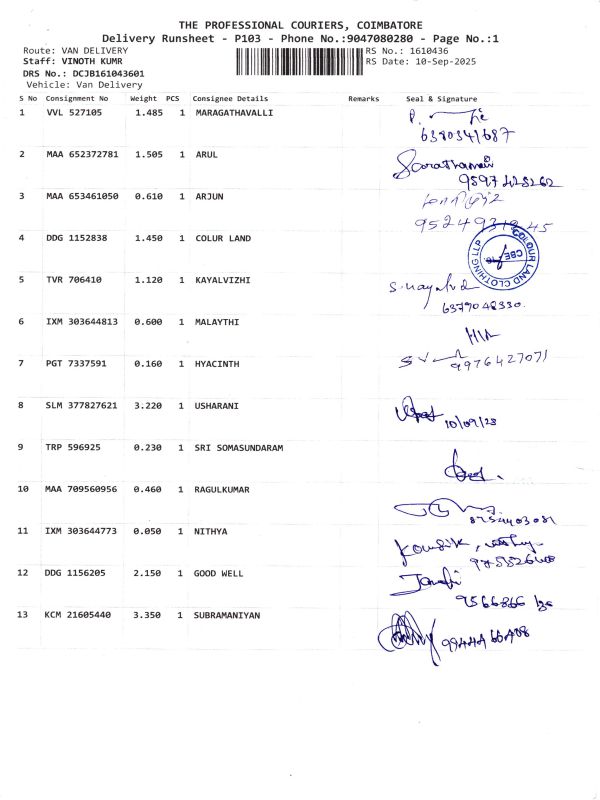 THE PROFESSIONAL COURIERS, COIMBATORE
Delivery Runsheet - P103 - Phone No.:9047080280 - Page No.:1
Route: VAN DELIVERY RS No.: 1610436
Staff: VINOTH KUMR RS Date: 10-Sep-2025
DRS No.: DCJB161043601
Vehicle: Van Delivery
S No Consignment No Weight PCS Consignee Details Remarks Seal & Signature
1 VVL 527105 1.485 1 MARAGATHAVALLI
2 MAA 652372781 1.505 1 ARUL
3 MAA 653461050 0.610 1 ARJUN
4 DDG 1152838 1.450 1 COLUR LAND
COLOUR LAND CLOTHING LLP
5 TVR 706410 1.120 1 KAYALVIZHI
6379048330.
6 IXM 303644813 0.600 1 MALAYTHI
7 PGT 7337591 0.160 1 HYACINTH
9976427071
8 SLM 377827621 3.220 1 USHARANI
10/09/25
9 TRP 596925 0.230 1 SRI SOMASUNDARAM
10 MAA 709560956 0.460 1 RAGULKUMAR
11 IXM 303644773 0.050 1 NITHYA
12 DDG 1156205 2.150 1 GOOD WELL
13 KCM 21605440 3.350 1 SUBRAMANIYAN